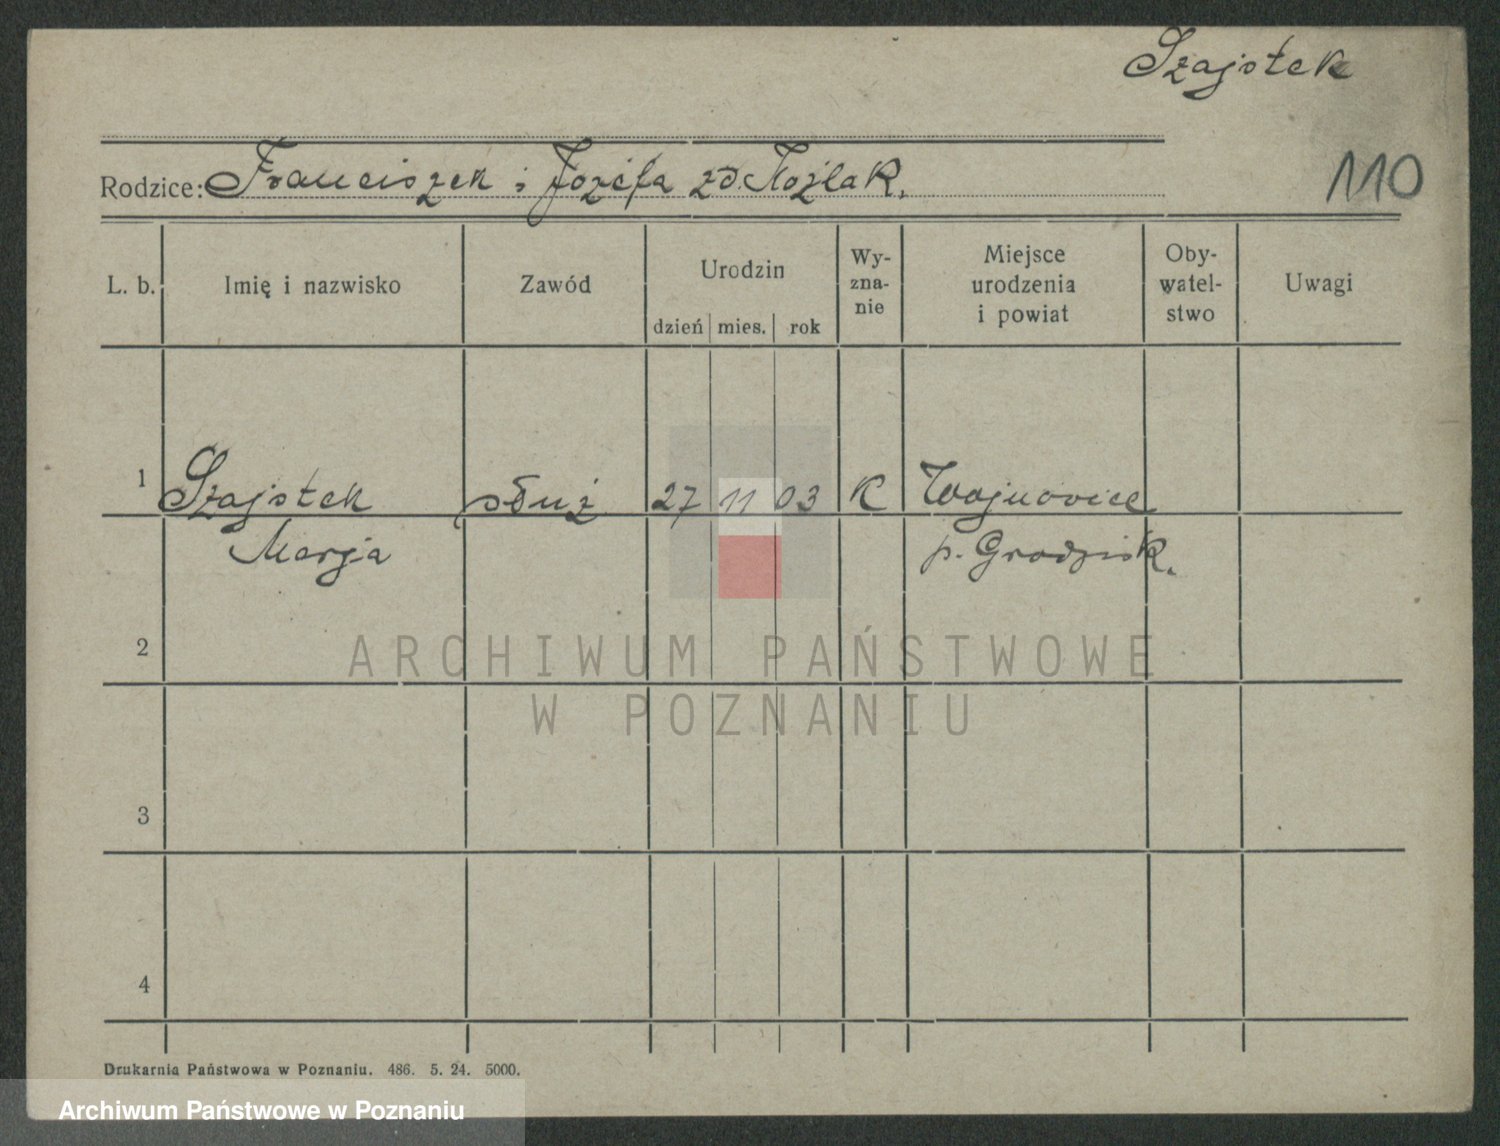 Szajstek
Rodzice: Franciszek i Józefa zd. Koźlak.
110
L. b. Imię i nazwisko Zawód Urodzin dzień mies. rok Wy-zna-nie Miejsce urodzenia i powiat Oby-watel-stwo Uwagi
1 Szajstek służ 27 11 03 K Wojnowice
Marja p. Grodzisk.
2
3
4
ARCHIWUM PAŃSTWOWE
W POZNANIU
Drukarnia Państwowa w Poznaniu. 486. 5. 24. 5000.
Archiwum Państwowe w Poznaniu